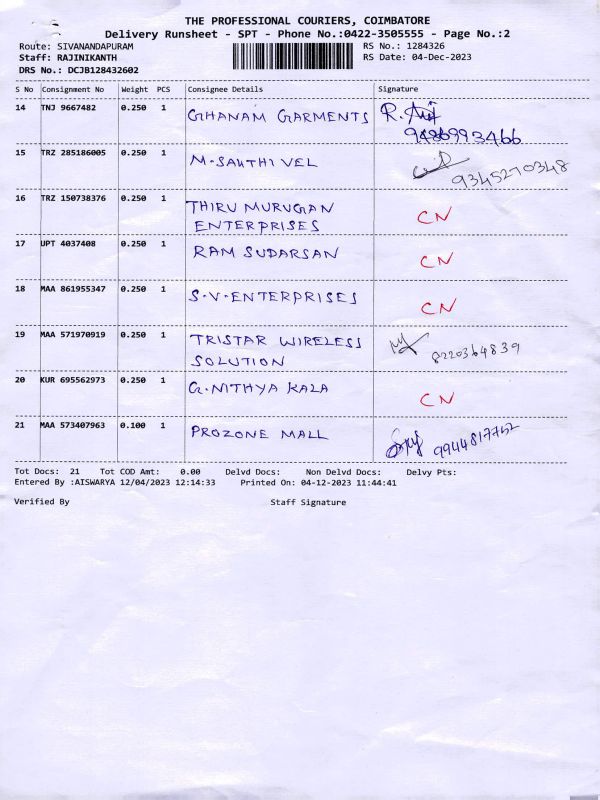 THE PROFESSIONAL COURIERS, COIMBATORE
Delivery Runsheet - SPT - Phone No.:0422-3505555 - Page No.:2
Route: SIVANANDAPURAM RS No.: 1284326
Staff: RAJINIKANTH RS Date: 04-Dec-2023
DRS No.: DCJB128432602
S No Consignment No Weight PCS Consignee Details Signature
14 TNJ 9667482 0.250 1 GHANAM GARMENTS R.
9486993466
15 TRZ 285186005 0.250 1 M.SAUTHIVEL 9345270348
16 TRZ 150738376 0.250 1 THIRU MURUGAN
ENTERPRISES CN
17 UPT 4037408 0.250 1 RAM SUDARSAN CN
18 MAA 861955347 0.250 1 S.V.ENTERPRISES CN
19 MAA 571970919 0.250 1 TRISTAR WIRELESS 8220364839
SOLUTION
20 KUR 695562973 0.250 1 G.NITHYA KALA CN
21 MAA 573407963 0.100 1 PROZONE MALL 9944817752
Tot Docs: 21 Tot COD Amt: 0.00 Delvd Docs: Non Delvd Docs: Delvy Pts:
Entered By :AISWARYA 12/04/2023 12:14:33 Printed On: 04-12-2023 11:44:41
Verified By Staff Signature